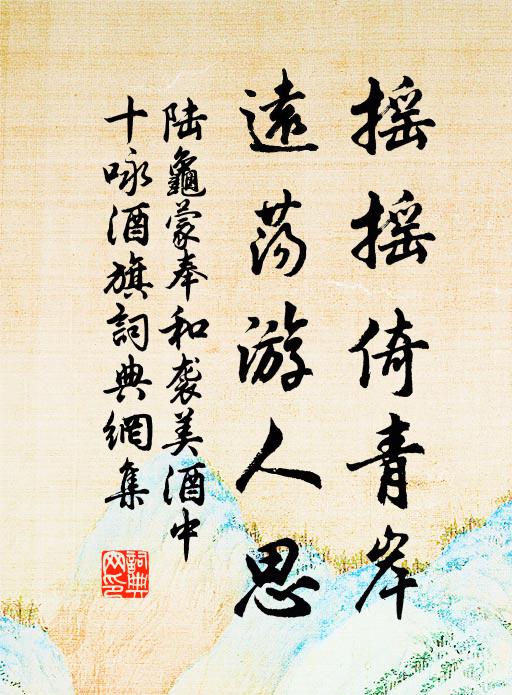 摇摇倚青岸
遠荡游人思
陆龜蒙奉和袭美酒中
十咏酒旗詞典網集
詞典
网印